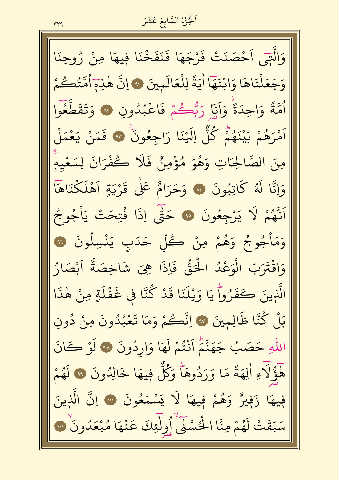 اَلْجُزْءُ السَّابِعَ عَشَرَ
٣٢٩
وَالَّتٖٓي اَحْصَنَتْ فَرْجَهَا فَنَفَخْنَا فٖيهَا مِنْ رُوحِنَا
وَجَعَلْنَاهَا وَابْنَهَٓا اٰيَةً لِلْعَالَمٖينَ ﴿٩١﴾ اِنَّ هٰذِهٖٓ اُمَّتُكُمْ
اُمَّةً وَاحِدَةًۘ وَاَنَا۬ رَبُّكُمْ فَاعْبُدُونِ ﴿٩٢﴾ وَتَقَطَّعُٓوا
اَمْرَهُمْ بَيْنَهُمْۜ كُلٌّ اِلَيْنَا رَاجِعُونَ۟ ﴿٩٣﴾ فَمَنْ يَعْمَلْ
مِنَ الصَّالِحَاتِ وَهُوَ مُؤْمِنٌ فَلَا كُفْرَانَ لِسَعْيِهٖۚ
وَاِنَّا لَهُ كَاتِبُونَ ﴿٩٤﴾ وَحَرَامٌ عَلٰى قَرْيَةٍ اَهْلَكْنَاهَٓا
اَنَّهُمْ لَا يَرْجِعُونَ ﴿٩٥﴾ حَتّٰٓى اِذَا فُتِحَتْ يَأْجُوجُ
وَمَأْجُوجُ وَهُمْ مِنْ كُلِّ حَدَبٍ يَنْسِلُونَ ﴿٩٦﴾
وَاقْتَرَبَ الْوَعْدُ الْحَقُّ فَاِذَا هِيَ شَاخِصَةٌ اَبْصَارُ
الَّذٖينَ كَفَرُواۜ يَا وَيْلَنَا قَدْ كُنَّا فٖي غَفْلَةٍ مِنْ هٰذَا
بَلْ كُنَّا ظَالِمٖينَ ﴿٩٧﴾ اِنَّكُمْ وَمَا تَعْبُدُونَ مِنْ دُونِ
اللّٰهِ حَصَبُ جَهَنَّمَۜ اَنْتُمْ لَهَا وَارِدُونَ ﴿٩٨﴾ لَوْ كَانَ
هٰٓؤُ۬لَٓاءِ اٰلِهَةً مَا وَرَدُوهَاۜ وَكُلٌّ فٖيهَا خَالِدُونَ ﴿٩٩﴾ لَهُمْ
فٖيهَا زَفٖيرٌ وَهُمْ فٖيهَا لَا يَسْمَعُونَ ﴿١٠٠﴾ اِنَّ الَّذٖينَ
سَبَقَتْ لَهُمْ مِنَّا الْحُسْنٰٓىۙ اُو۬لٰٓئِكَ عَنْهَا مُبْعَدُونَۙ ﴿١٠١﴾